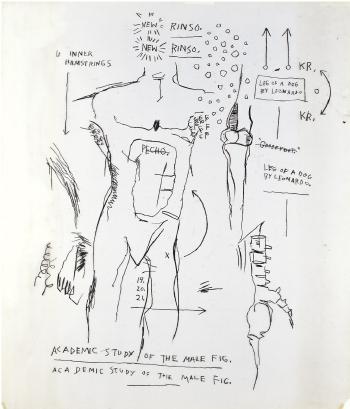 NEW RINSO.
NEW RINSO.
6 INNER
HAMSTRINGS
KR.
LEG OF A DOG
BY LEONARDO
KR.
LEG OF A DOG
BY LEONARDO
PECHO.
X
19.
20.
21.
ACADEMIC STUDY OF THE MALE FIG.
ACADEMIC STUDY OF THE MALE FIG.